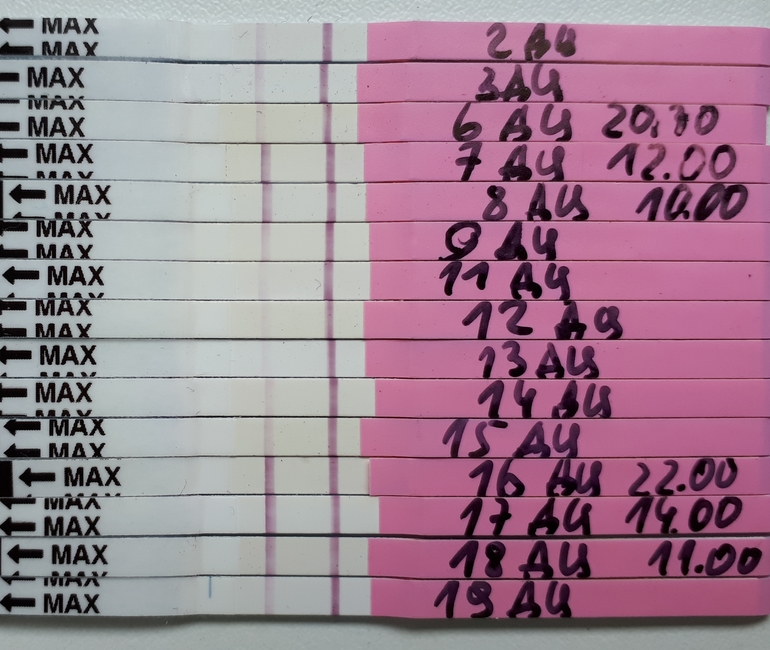 ← MAX
← MAX 2 ДЦ
← MAX 3 ДЦ
← MAX
← MAX 6 ДЦ
← MAX 7 ДЦ 12.00
← MAX 8 ДЦ 10.00
← MAX
← MAX 9 ДЦ
← MAX 11 ДЦ
← MAX
← MAX 12 ДЦ
← MAX 13 ДЦ
← MAX 14 ДЦ
← MAX
← MAX 15 ДЦ
← MAX 16 ДЦ 22.00
← MAX
← MAX 17 ДЦ 14.00
← MAX 18 ДЦ 11.00
← MAX
← MAX 19 ДЦ